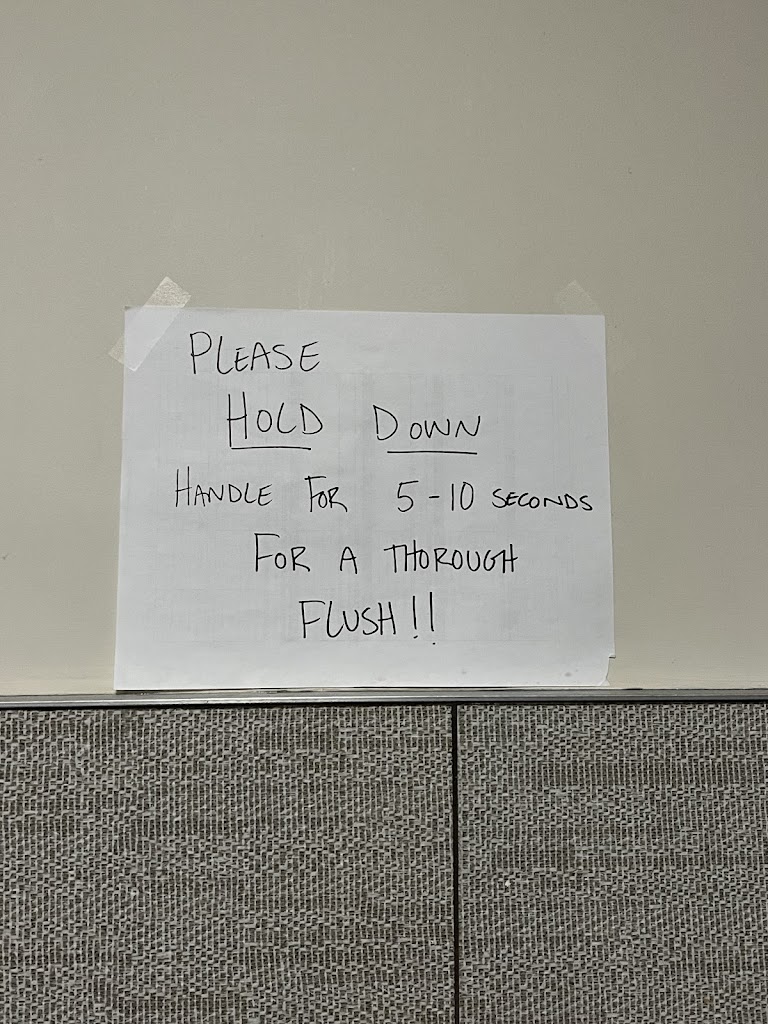 PLEASE
HOLD DOWN
HANDLE FOR 5-10 SECONDS
FOR A THOROUGH
FLUSH!!